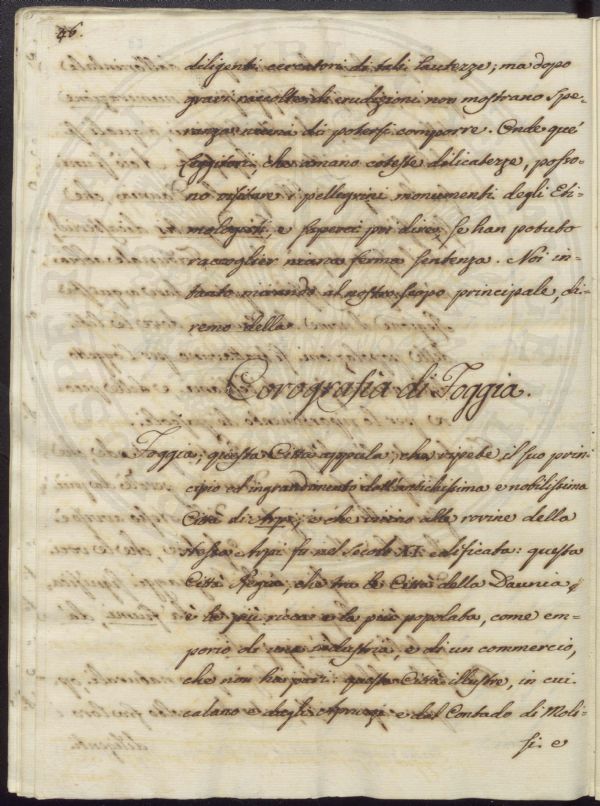 46.
diligenti cercatori di tali lautezze; ma dopo
gravi raccolte di erudizioni non mostrano spe-
ranza niuna di potersi comporre. Onde que'
Leggitori, che amano coteste dilicatezze, posso-
no visitare i pellegrini monumenti degli Eti-
mologisti e saperci poi dire, se han potuto
raccoglier niuna ferma sentenza. Noi in-
tanto mirando al nostro scopo principale, di-
remo della
Corografia di Foggia.
Foggia, questa Città appula, che ripete il suo prin-
cipio ed ingrandimento dall'antichissima e nobilissima
Città di Arpi, e che vicino alle rovine della
stessa Arpi fu nel secolo XI. edificata: questa
Città Regia, che tra le Città della Daunia
è la più ricca e la più popolata, come em-
porio di una industria, e di un commercio,
che non han pari: questa Città illustre, in cui
calano e dagli Apruzzi e dal Contado di Moli-
si. e